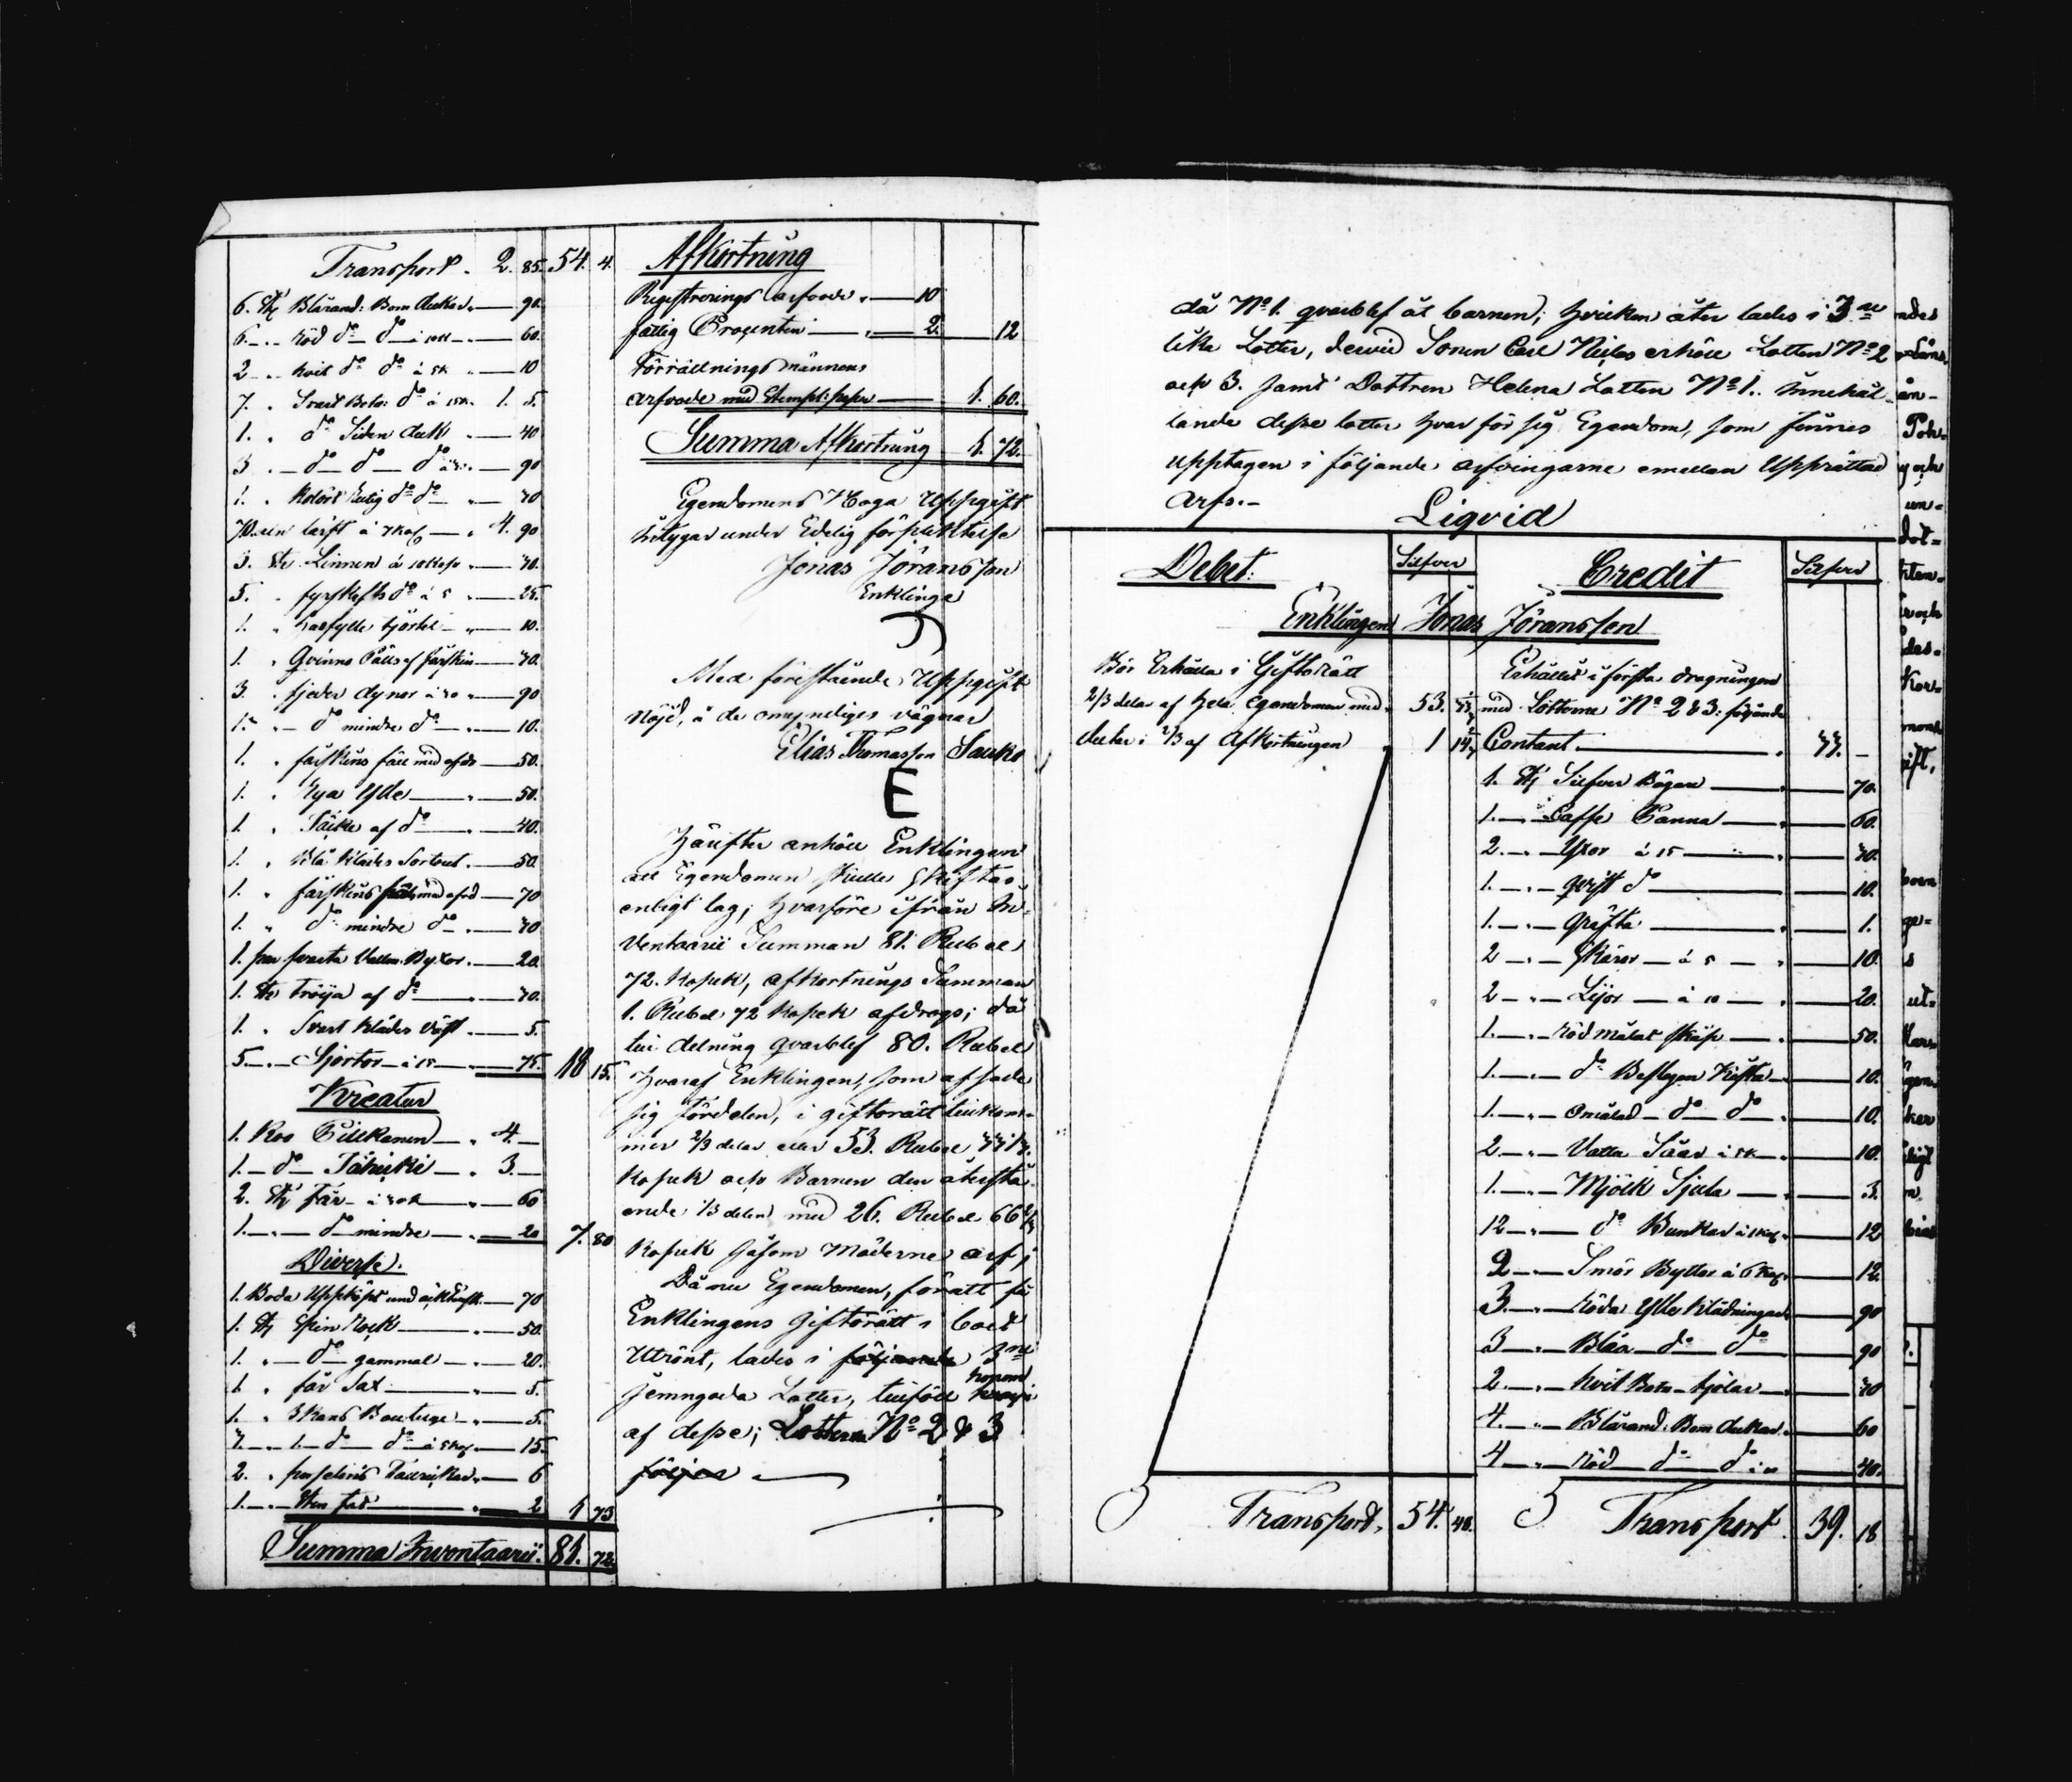 Transport. 2. 85. 54. 4.
6. St Blårand: Bom dukar 90.
6. Röd do do à 10k 60.
2 hvit do do à 5k 10
7. Svart Bom: do à 15k. 1. 5.
1. do Siden duk 40
3 do do do 90
1. do do 30
70 aln à 7 kop 4. 90
3. St Linnen à 10 kop 30.
5. do à 5 25.
1. kjortel 10.
1. Qvinno Päls af fårskin 30.
3. fjeder dynor à 30 90
1. do mindre do 10.
1. fårskins fäll med 50.
1. Nya Ylle 50.
1. Täcke af do 40.
1. Blå Klädes Sortout 50.
1. fårskins med 70
1. do mindre do 30
1. par svarta Vallm. Byxor 20.
1. St tröija af do 30.
1. Svart Klädes Väst 5.
5. Sjortor à 15 75. 18 15.
Kreatur
1. Koo 4.
1. do 3.
2. St Får à 30k 60
1. do mindre 20 7. 80
Diverse.
1. Boda 70
1. St Spin Rock 50.
1. do gammal 20.
1. får Sax 5.
1. 3 kans Bouteige 5.
3. 1. do do à 5 kop 15.
2. 6
1. Sten fat 2 1 73
Summa Inventaarii. 81. 72.
Afkortning
Registrerings arfvode 10
fattig Procenten 2. 12
Förrättnings männens
arfvode med Stempl: paper 1. 60.
Summa Afkortning 1. 72.
Egendomens Noga Uppgift
betygar under Edelig förpliktelse
Jonas Jöransson
Enklinge
Med förestående Uppgift
Nöjd, å de omyndiges vägnar
Elias Thomasson Sauko
E
Härefter anhöll Enklingen
att Egendomen skulle skiftas
enligt lag; hvarföre ifrån In-
ventaarii Summan 81. Rubel
72. Kopek, afkortnings Summan
1. Rubel 72 Kopek afdrogs; då
till delning qvarblef 80. Rubel
hvaraf Enklingen, som afsade
sig fördelen, i giftorätt tillkom-
mer 2/3 delar eller 53. Rubel 33 1/3.
Kopek och Barnen den återstå-
ende 1/3 delen med 26. Rubel 66 2/3
Kopek såsom Möderne arf;
Då nu Egendomen, för att få
Enklingens Giftorätt i boet
Utrönt, lades i följande 3ne
jemngoda Lotter, tillföll honom
af desse; Lotterna No 2 & 3
följer
då No 1. qvarblef åt barnen; hvilken åter lades i 3ne
lika Lotter, dervid Sonen Carl Niclas erhöll Lotten No 2
och 3. samt Dottren Helena Lotten No 1. innehål-
lande desse lotter hvar för sig Egendom, som finnes
upptagen i följande arfvingarne emellan Upprättad
Arfs.-
Liqvid
Debet: Silfver Credit Silfver
Enklingen Jonas Jöransson
Bör Erhålla i Giftorätt
2/3 delar af hela egendomen med 53. 33 1/3
2/3 af Afkortningen 1 14 2/3
Transport. 54. 48.
Erhållit i första dragningen
med Lotterne No 2 & 3: följande
Contant 33. -
1. St Silfver Bägare 70.
1. Caffe Panna 60.
2. Yxor à 15 30.
1. qvist do 10.
1. Gräfta 1.
2 Skäror à 5 10.
2 Lijor à 10 20.
1. Röd målat skåp 50.
1. do Beslagen Kista 10.
1. Omålad do do 10.
2. Vatten Såar à 5k 10.
1. Mjölk Sjula 3.
12 do Bunkar à 1 kop. 12
2 Smör Byttor à 6 kop 12.
3. Röda Ylle Klädningar 90
3 Blåa do do 90
2. hvit Bom kjolar 30
4. Blårand: Bom dukar 60
4 Röd do do 40.
Transport. 39. 18